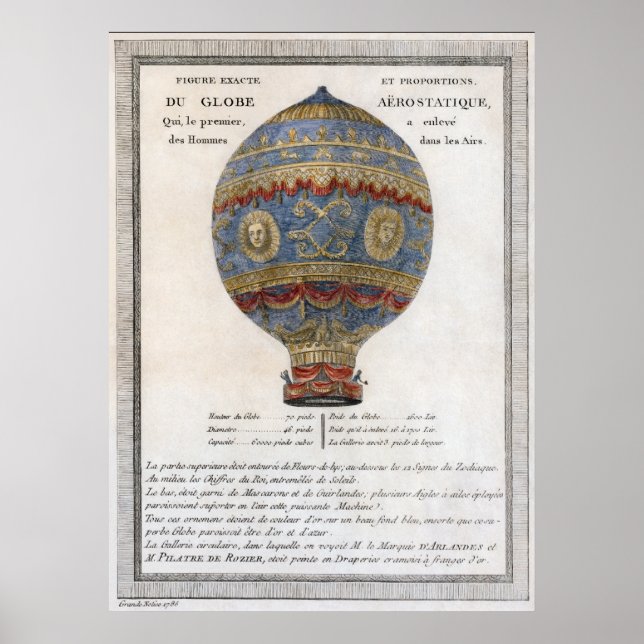 FIGURE EXACTE ET PROPORTIONS.
DU GLOBE AËROSTATIQUE,
Qui, le premier, a enlevé
des Hommes dans les Airs.
Hauteur du Globe ........ 70 pieds
Diametre ........ 46 pieds
Capacité ..... 60000 pieds cubes
Poids du Globe ........ 1600 Liv.
Poids qu'il a enlevé 16 à 1700 Liv.
La Gallerie avoit 3 pieds de largeur.
La partie superieure étoit entourée de Fleurs-de-lys; au-dessous les 12 Signes du Zodiaque.
Au milieu les Chiffres du Roi, entremêlés de Soleils.
Le bas, étoit garni de Mascarons et de Guirlandes; plusieurs Aigles à ailes éployées
paroissoient suporter en l'air cette puissante Machine).
Tous ces ornemens étoient de couleur d'or sur un beau fond bleu, ensorte que ce su-
perbe Globe paroissoit être d'or et d'azur.
La Gallerie circulaire, dans laquelle on voyoit M. le Marquis D'ARLANDES et
M. PILATRE DE ROZIER, etoit peinte en Draperies cramoisi à franges d'or.
Grande Notice 1786